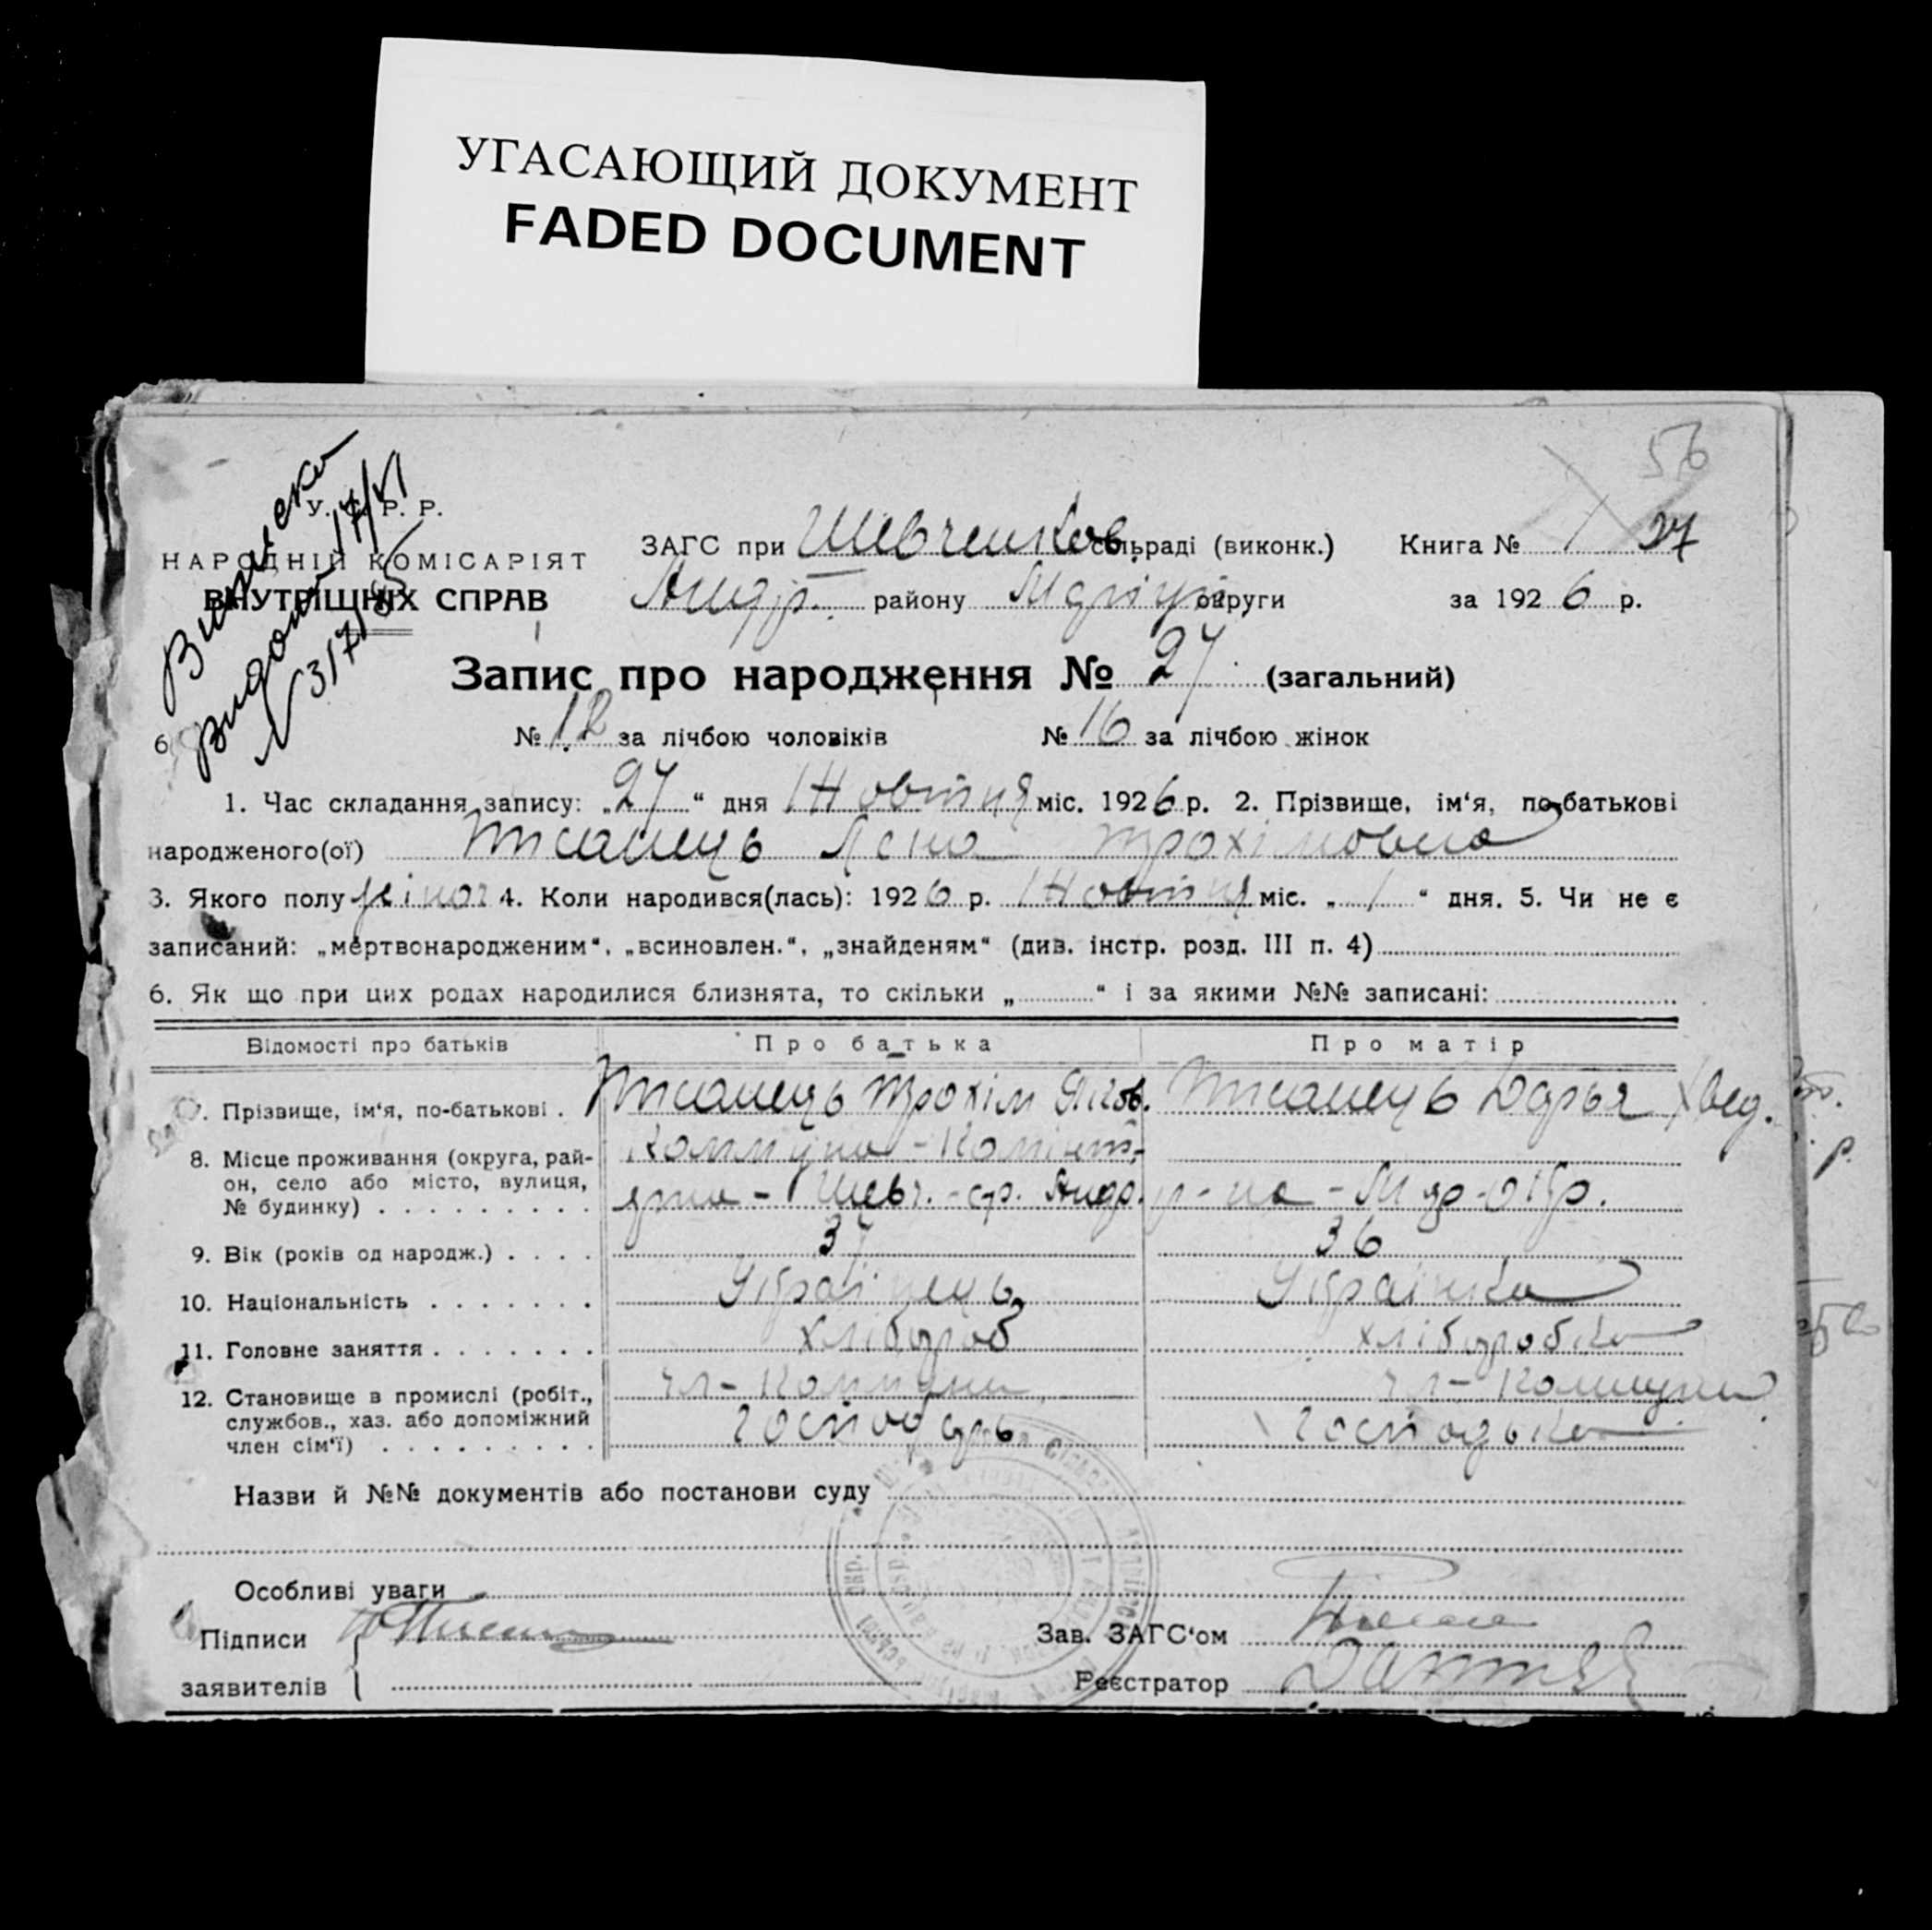 УГАСАЮЩИЙ ДОКУМЕНТ
FADED DOCUMENT
56
У. С. Р. Р.
НАРОДНІЙ КОМІСАРІЯТ
ВНУТРІШНІХ СПРАВ
Видана 17/VI
ЗАГС при Шевченков сільраді (виконк.) Книга № 1 27
Андр. району Маріуп. округи за 1926 р.
Запис про народження № 27 (загальний)
№ 12 за лічбою чоловіків № 16 за лічбою жінок
1. Час складання запису: „27“ дня Жовтня міс. 1926 р. 2. Прізвище, ім‘я, по-батькові
народженого(ої) Писанець Ясна Трохімовна
3. Якого полу жіноч 4. Коли народився(лась): 1926 р. Жовтня міс. „1“ дня. 5. Чи не є
записаний: „мертвонародженим“, „всиновлен.“, „знайденям“ (див. інстр. розд. III п. 4)
6. Як що при цих родах народилися близнята, то скільки „ “ і за якими №№ записані:
Відомості про батьків Про батька Про матір
7. Прізвище, ім‘я, по-батькові . Писанець Трохім Яков. Писанець Дарья Хвед.
8. Місце проживання (округа, рай- Коммуна - Комінт-
он, село або місто, вулиця, ерна - Шевч. - ср. Андр. р-на - Мар-окр.
№ будинку)
9. Вік (років од народж.) 37 36
10. Національність Украінець Украінка
11. Головне заняття хлібороб хліборобка
12. Становище в промислі (робіт., чл - Коммуни чл - Коммуни
службов., хаз. або допоміжний господарь господька
член сім‘ї)
Назви й №№ документів або постанови суду
Особливі уваги
Підписи Зав. ЗАГС‘ом
заявителів Реєстратор